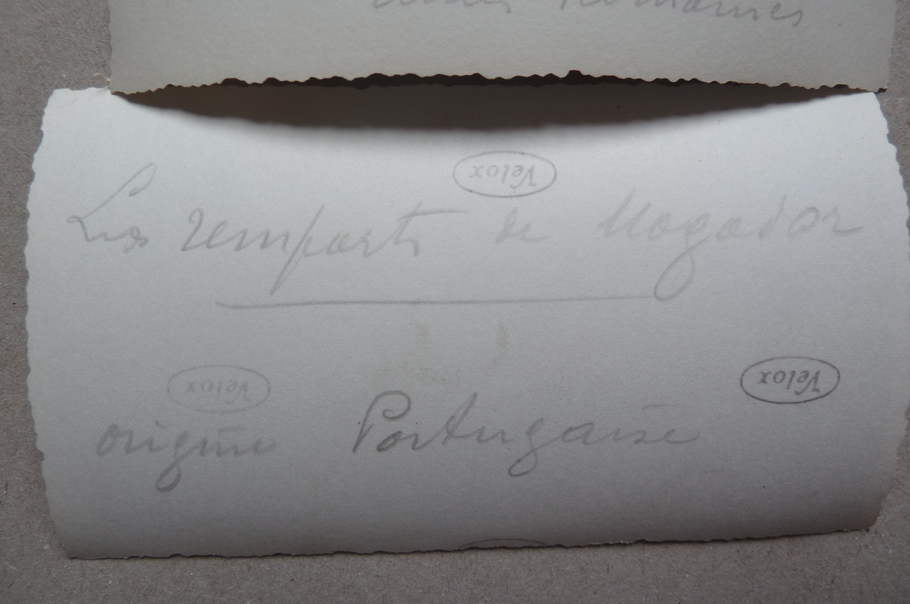 Romaines
Velox
Les remparts de Mogador
Velox
Velox
origine Portugaise